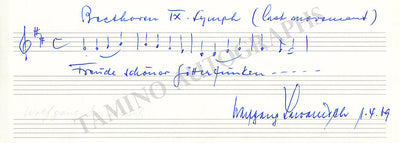 Beethoven IX. Symph (last movement)
Freude schöner Götterfunken -----
Wolfgang Sawallisch 1.4.89
TAMINO AUTOGRAPHS
Wolfgang